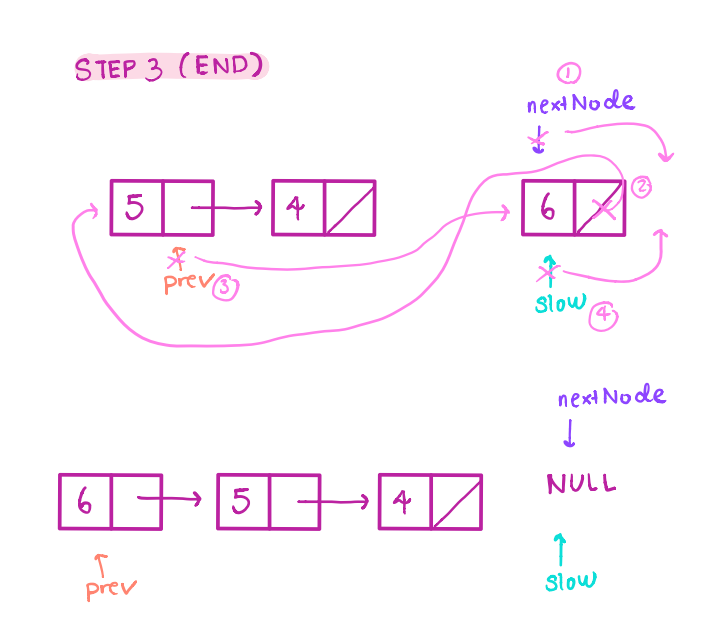 STEP 3 (END)
1
nextNode
5
4
6
2
prev 3
slow
4
nextNode
6
5
4
NULL
prev
slow